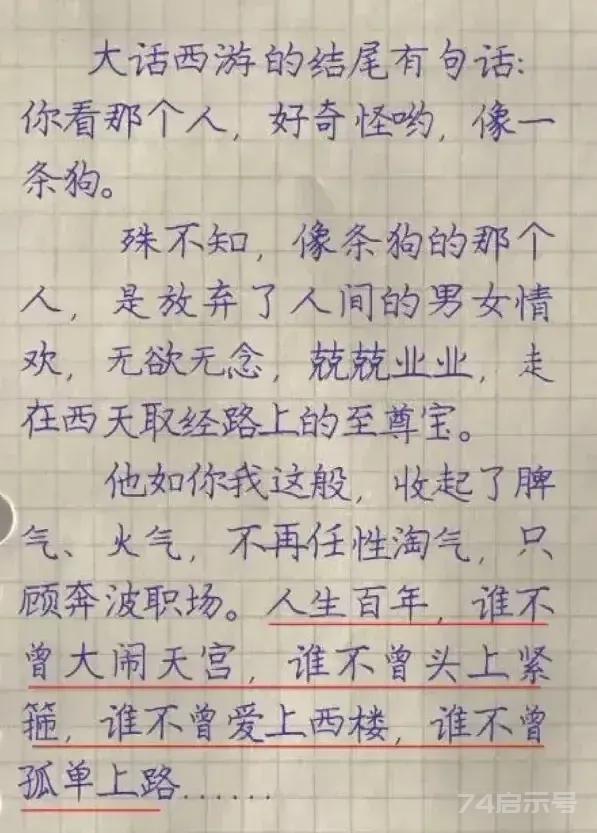 大话西游的结尾有句话:
你看那个人，好奇怪哟，像一
条狗。
殊不知，像条狗的那个
人，是放弃了人间的男女情
欢，无欲无念，兢兢业业，走
在西天取经路上的至尊宝。
他如你我这般，收起了脾
气、火气，不再任性淘气，只
顾奔波职场。人生百年，谁不
曾大闹天宫，谁不曾头上紧
箍，谁不曾爱上西楼，谁不曾
孤单上路......
74启示号